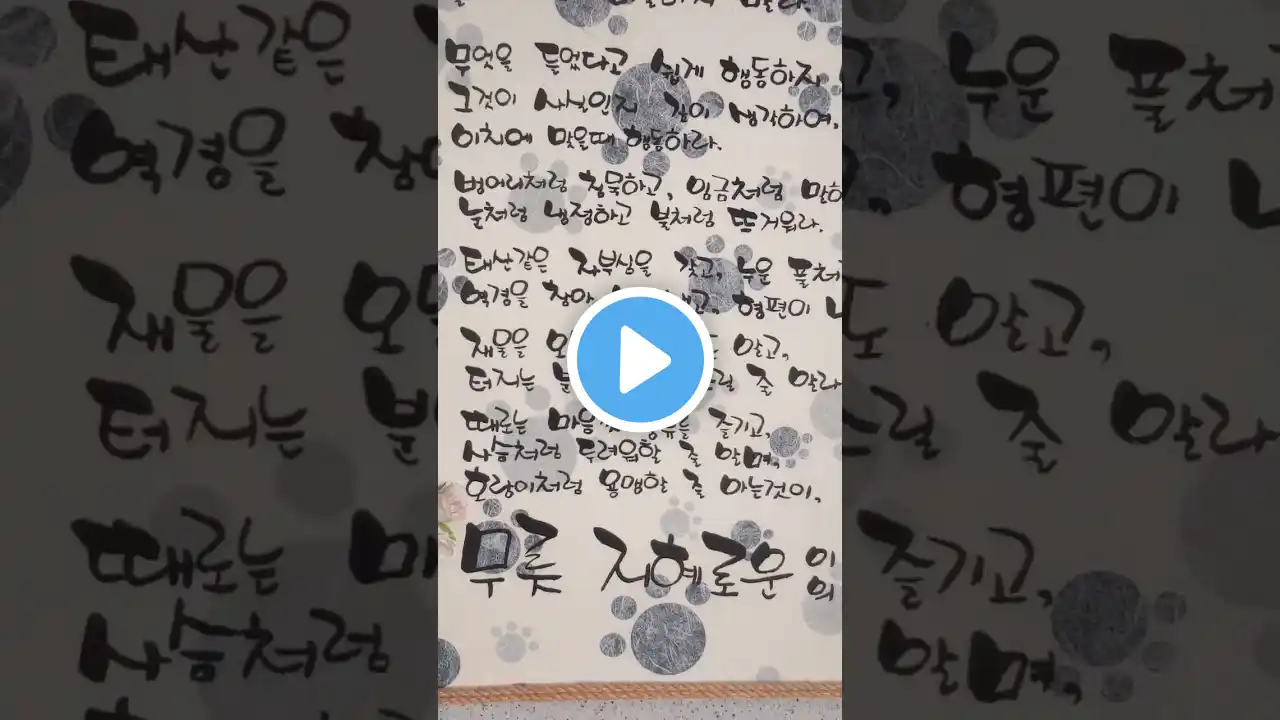 무엇을 들었다고 쉽게 행동하지
그것이 사실인지 깊이 생각하여,
이치에 맞을때 행동하라.
벙어리처럼 침묵하고, 임금처럼 말하
눈처럼 냉정하고 불처럼 뜨거워라.
태산같은 자부심을 갖고, 누운 풀처
역경을 참아 형편이
재물을 알고,
터지는 줄 알라
때로는 즐기고,
사슴처럼 두려워할 줄 알며,
호랑이처럼 용맹할 줄 아는것이,
무릇 지혜로운 이의